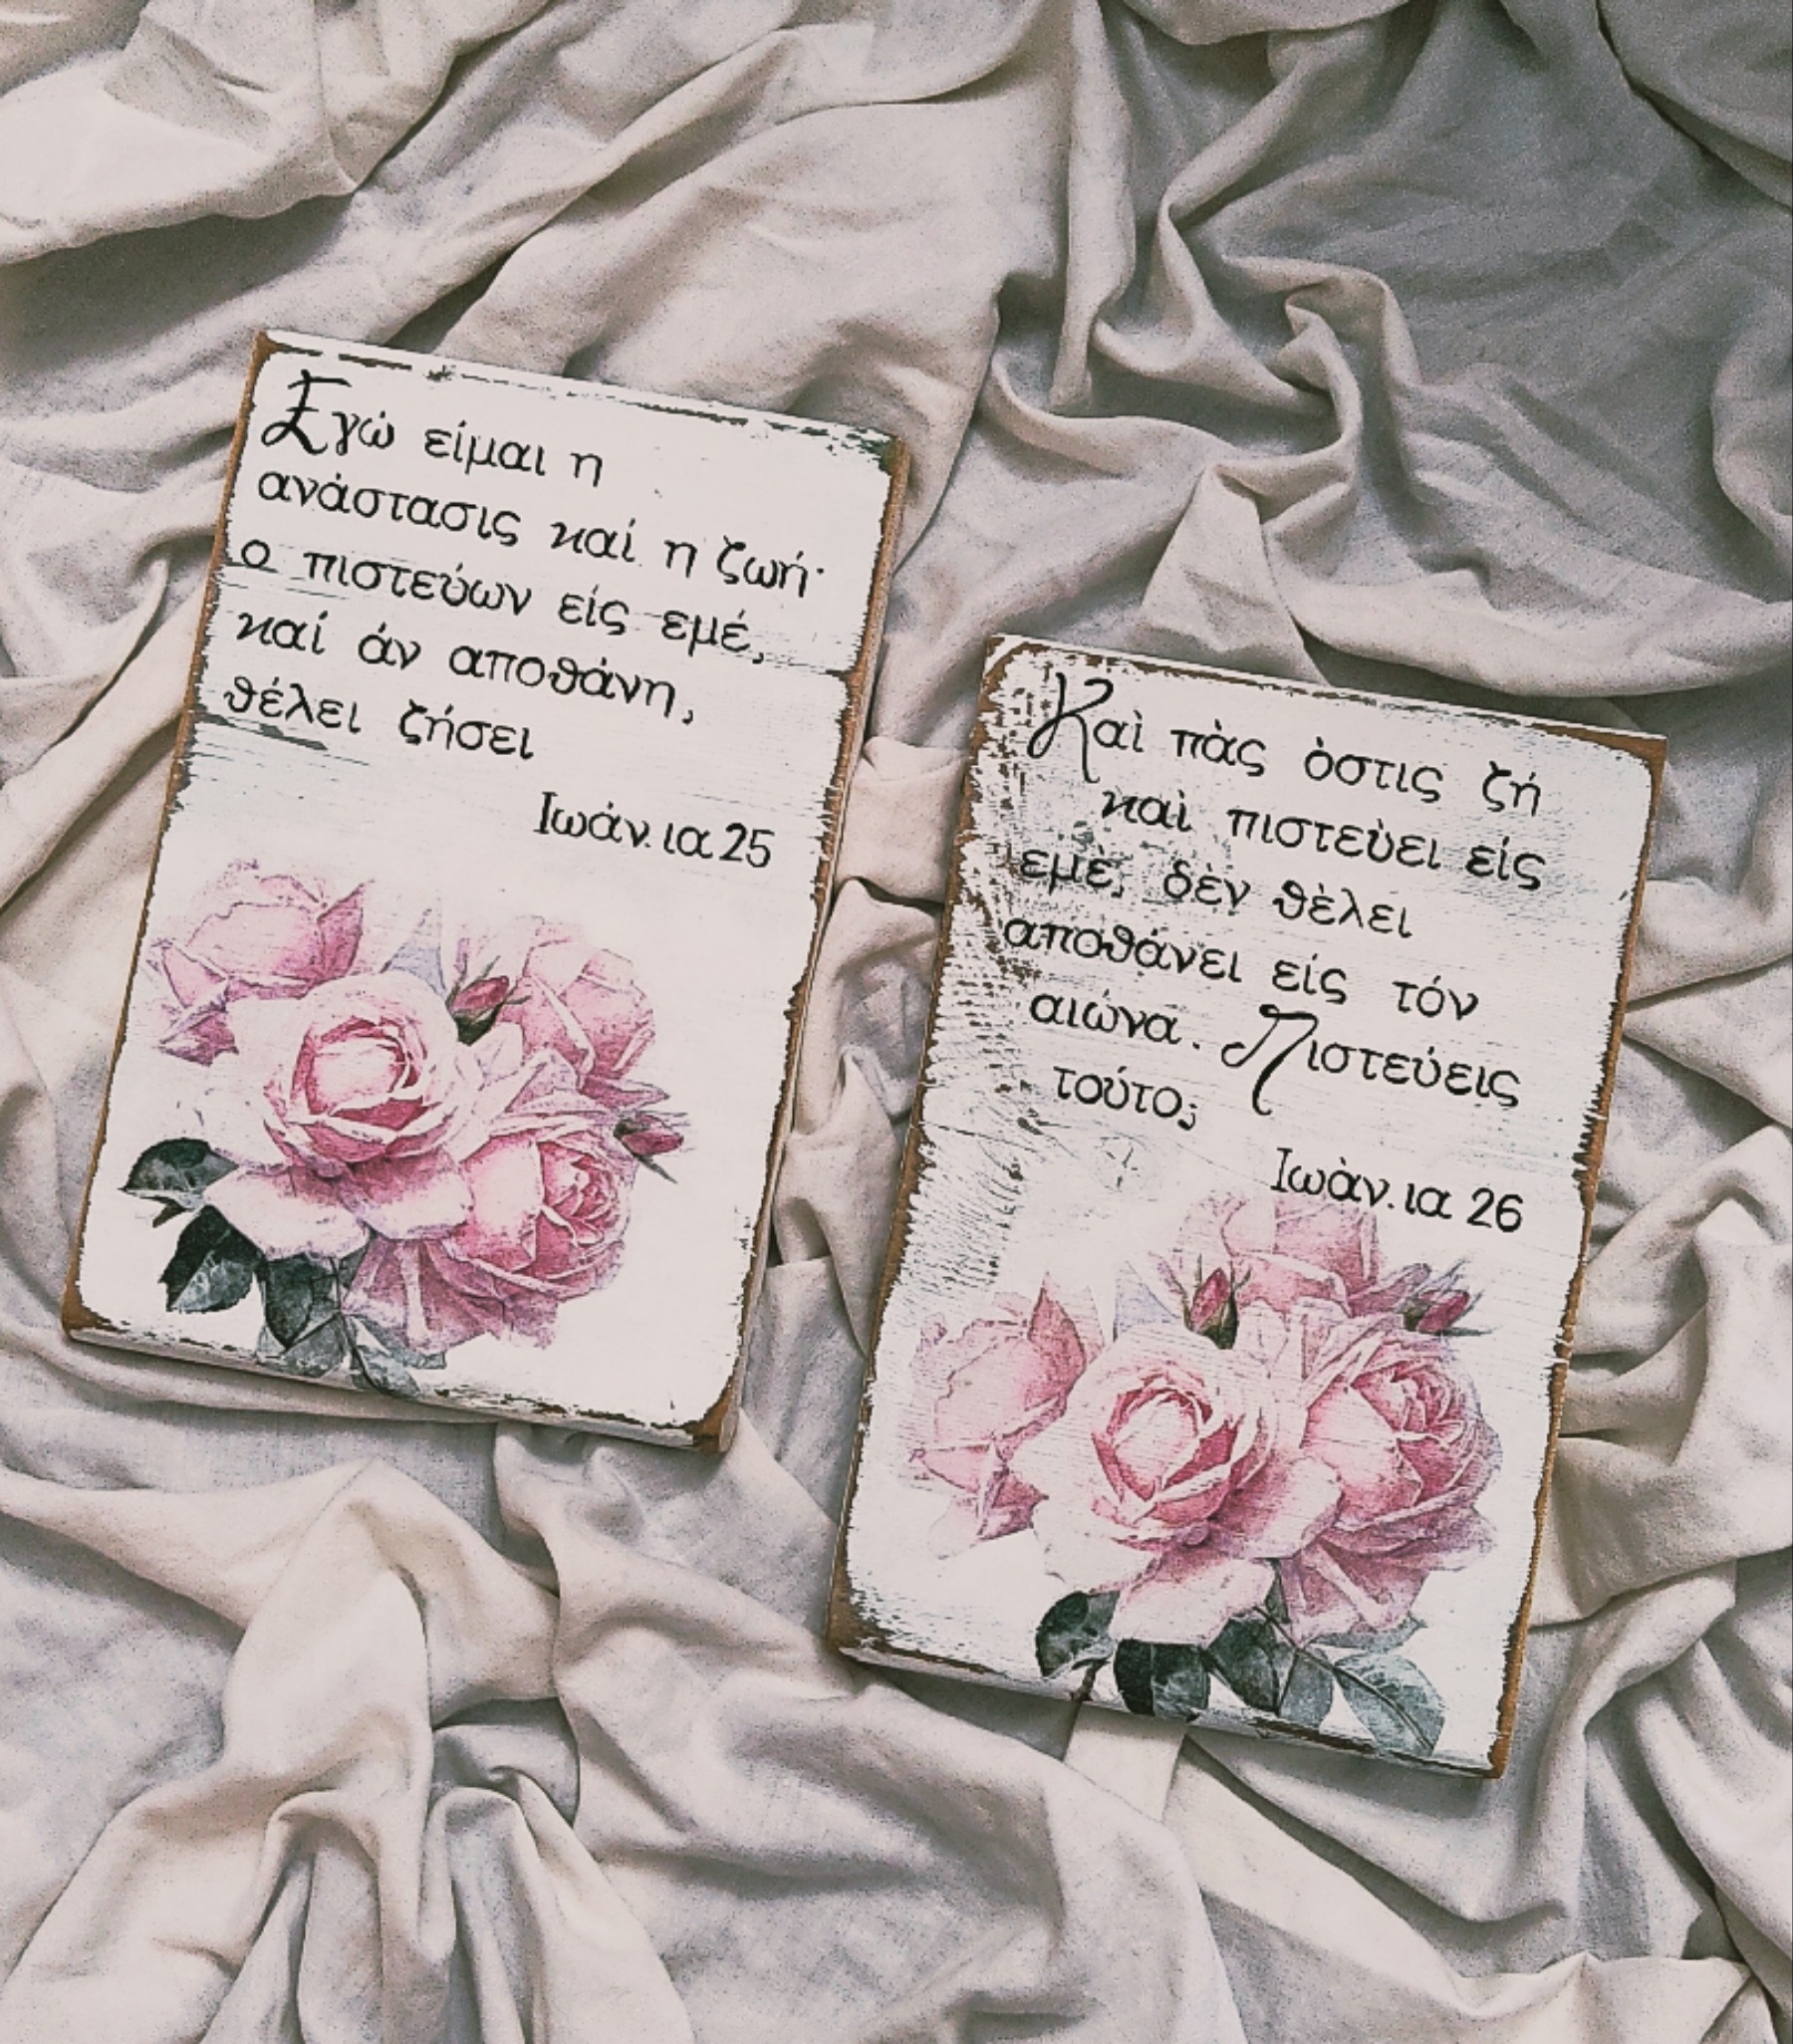 Εγώ είμαι η
ανάστασις καί η ζωή·
ο πιστεύων είς εμέ,
καί άν αποθάνη,
θέλει ζήσει
Ιωάν. ια 25
Καὶ πὰς ὸστις ζή
καὶ πιστεὺει είς
εμὲ, δὲν θὲλει
αποθάνει είς τόν
αιώνα. Πιστεύεις
τούτο;
Ιωὰν. ια 26